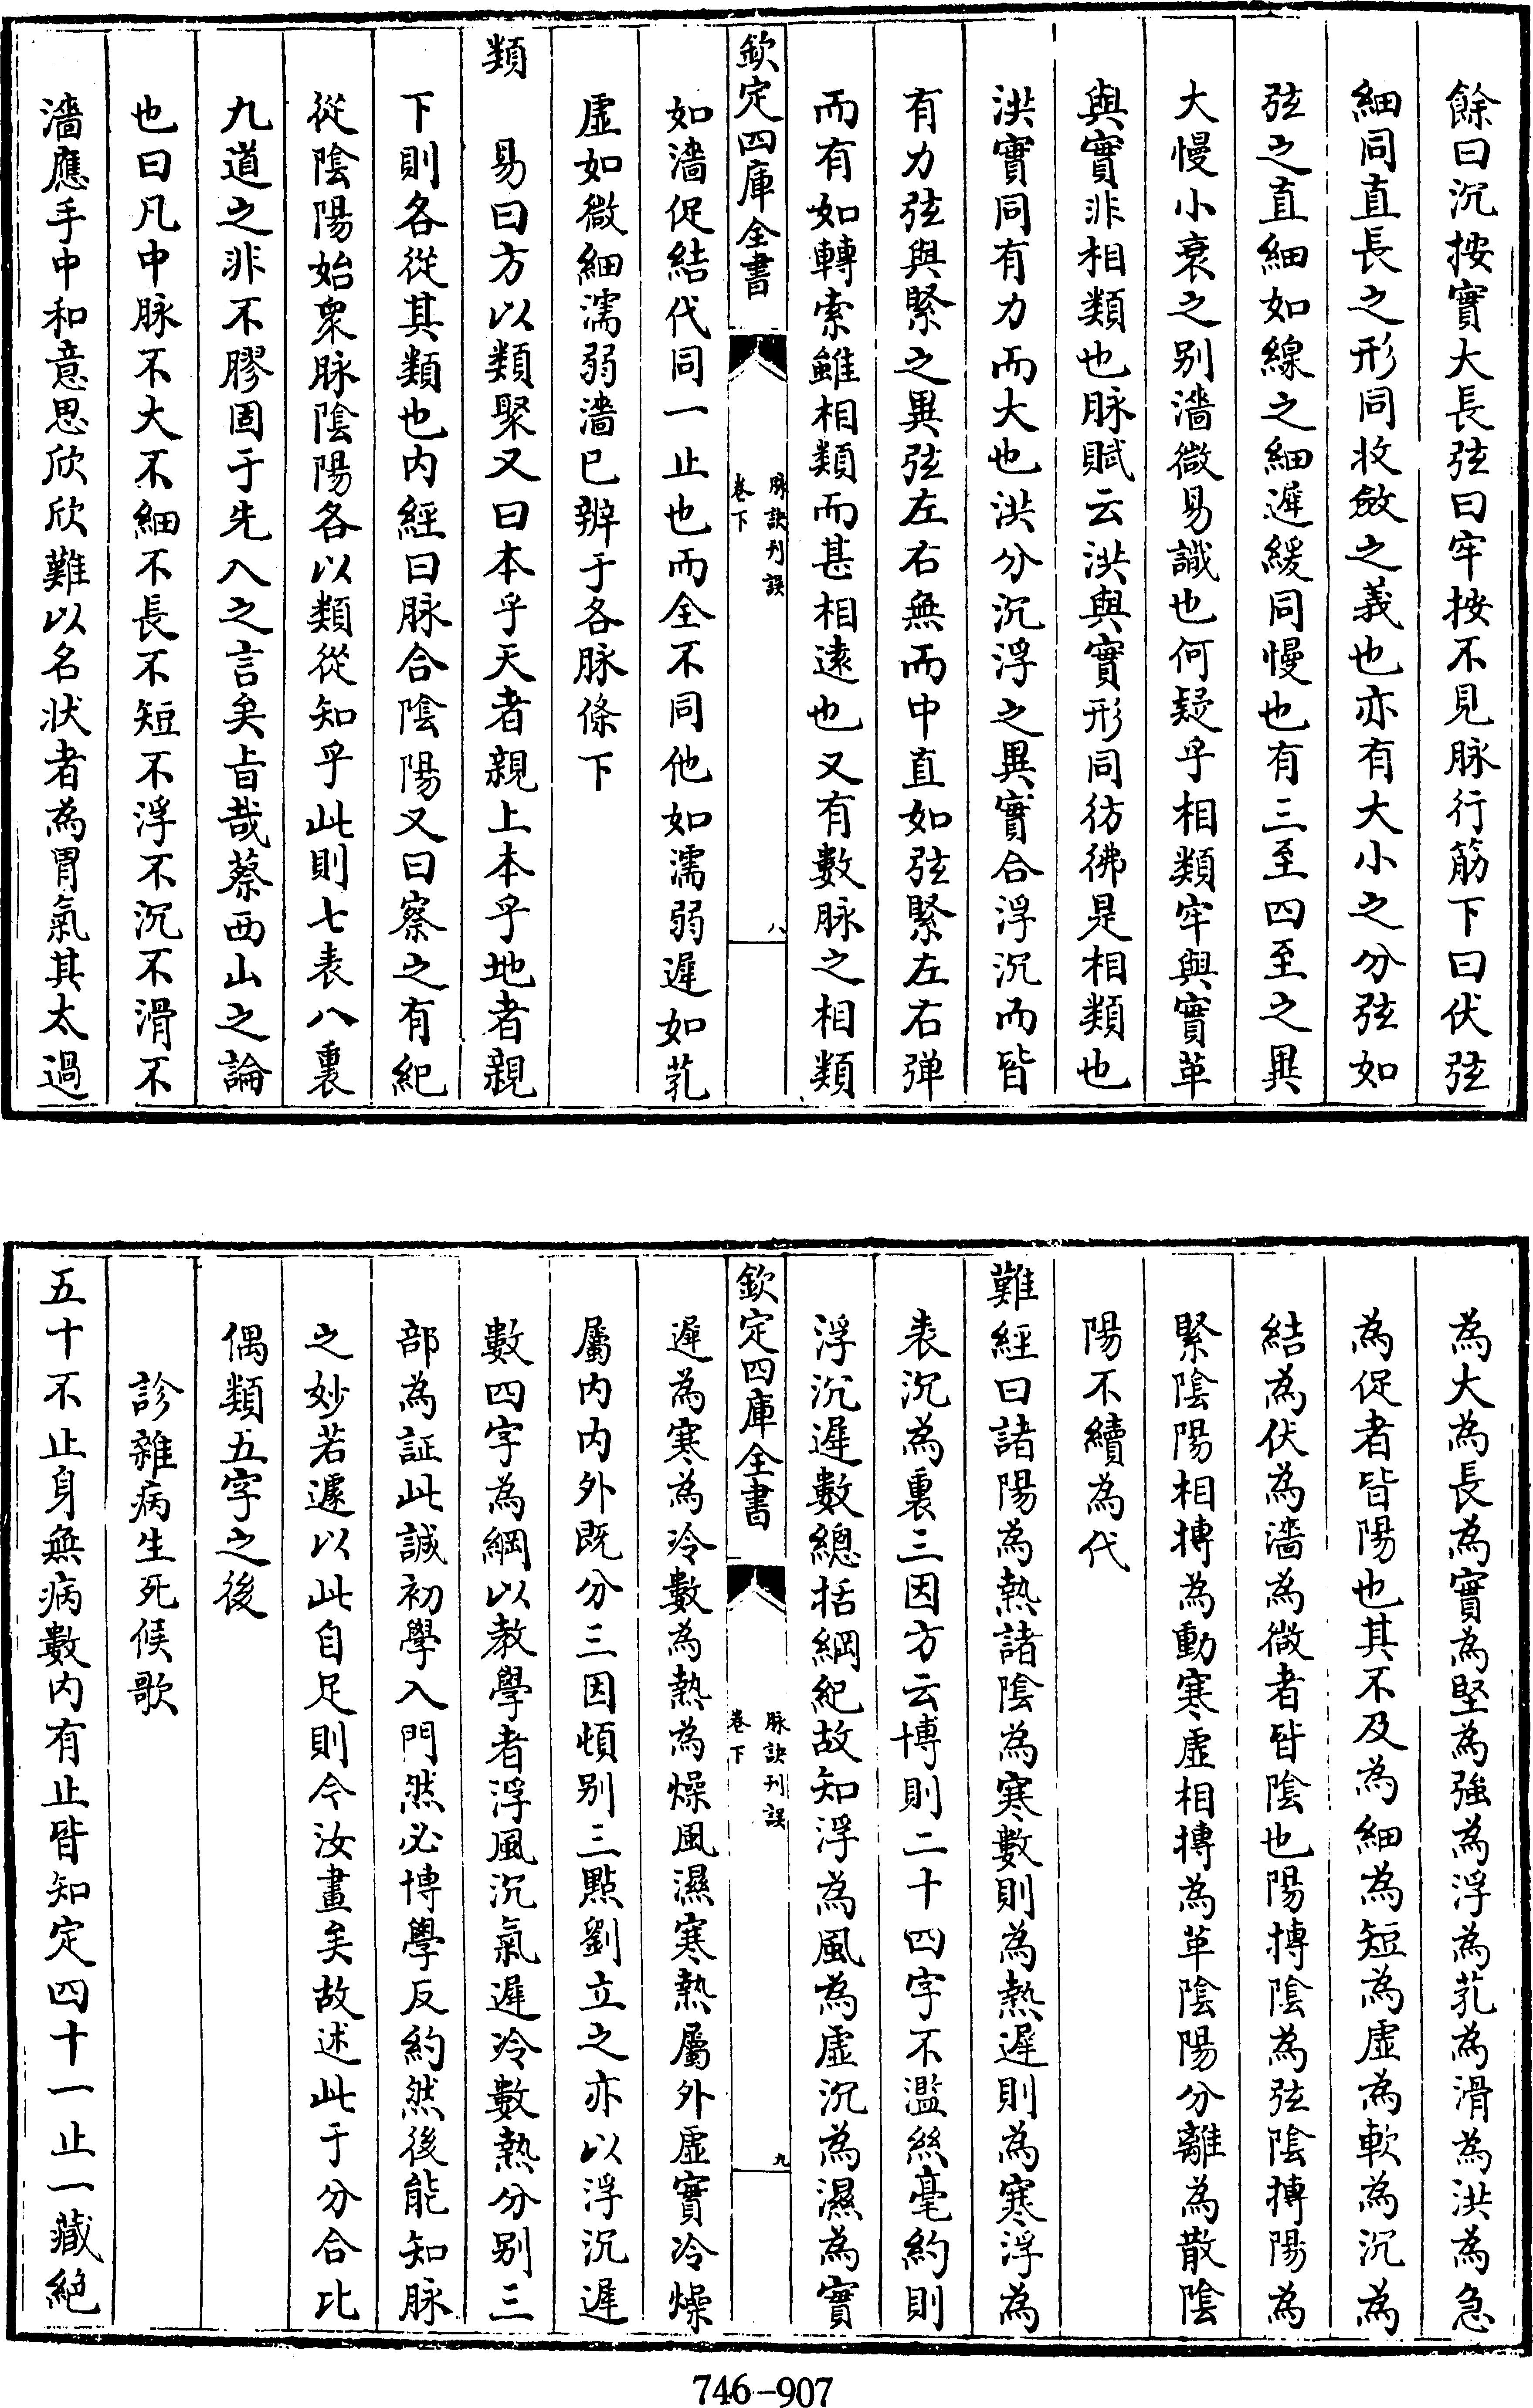 餘曰沉按實大長弦曰牢按不見脉行筋下曰伏弦
細同直長之形同收斂之義也亦有大小之分弦如
弦之直細如線之細遲緩同慢也有三至四至之異
大慢小衰之别濇微易識也何疑乎相類牢與實革
與實非相類也脉賦云洪與實形同彷彿是相類也
洪實同有力而大也洪分沉浮之異實合浮沉而皆
有力弦與緊之異弦左右無而中直如弦緊左右弹
而有如轉索雖相類而甚相遠也又有數脉之相類
欽定四庫全書
脉訣刋誤
卷下
八
如濇促結代同一止也而全不同他如濡弱遲如芤
虚如微細濡弱濇已辨于各脉條下
類　易曰方以類聚又曰本乎天者親上本乎地者親
下則各從其類也内經曰脉合隂陽又曰察之有紀
從隂陽始衆脉隂陽各以類從知乎此則七表八裏
九道之非不膠固于先入之言矣旨哉蔡西山之論
也曰凡中脉不大不細不長不短不浮不沉不滑不
濇應手中和意思欣欣難以名狀者為胃氣其太過
為大為長為實為堅為強為浮為芤為滑為洪為急
為促者皆陽也其不及為細為短為虚為軟為沉為
結為伏為濇為微者皆隂也陽搏隂為弦隂搏陽為
緊隂陽相搏為動寒虚相搏為革隂陽分離為散隂
陽不續為代
難經曰諸陽為熱諸隂為寒數則為熱遲則為寒浮為
表沉為裏三因方云博則二十四字不濫絲毫約則
浮沉遲數總括綱紀故知浮為風為虚沉為濕為實
欽定四庫全書
脉訣刋誤
卷下
九
遲為寒為冷數為熱為燥風濕寒熱屬外虚實冷燥
屬内内外既分三因頓别三點劉立之亦以浮沉遲
數四字為綱以教學者浮風沉氣遲冷數熱分别三
部為証此誠初學入門然必博學反約然後能知脉
之妙若遽以此自足則今汝畫矣故述此于分合比
偶類五字之後
診雜病生死候歌
五十不止身無病數内有止皆知定四十一止一藏絶
746-907